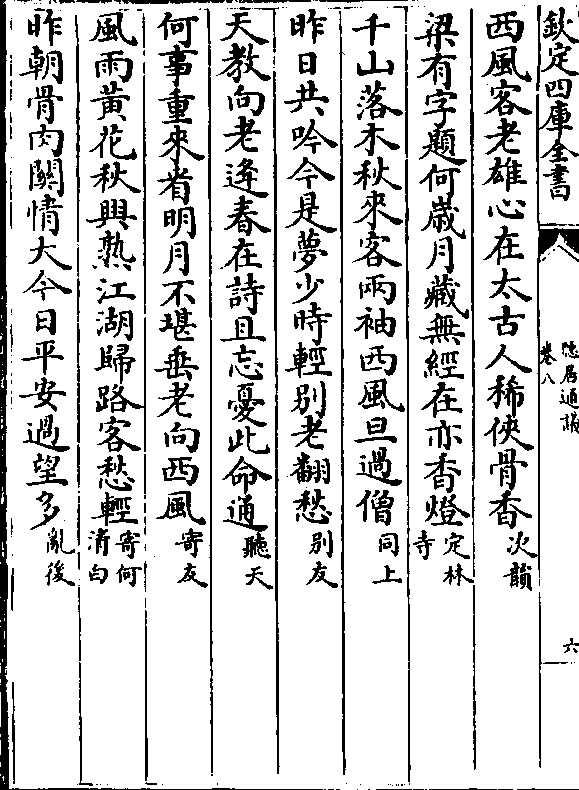 欽定四庫全書
隱居通議
卷八
六
西風客老雄心在太古人稀俠骨香次韻
梁有字題何嵗月藏無經在亦香燈定林寺
千山落木秋來客兩袖西風旦過僧同上
昨日共吟今是夢少時輕别老翻愁别友
天教向老逢春在詩且忘憂此命通聽天
何事重來看明月不堪垂老向西風寄友
風雨黄花秋興熟江湖歸路客愁輕寄何清白
昨朝骨肉關情大今日平安過望多亂後